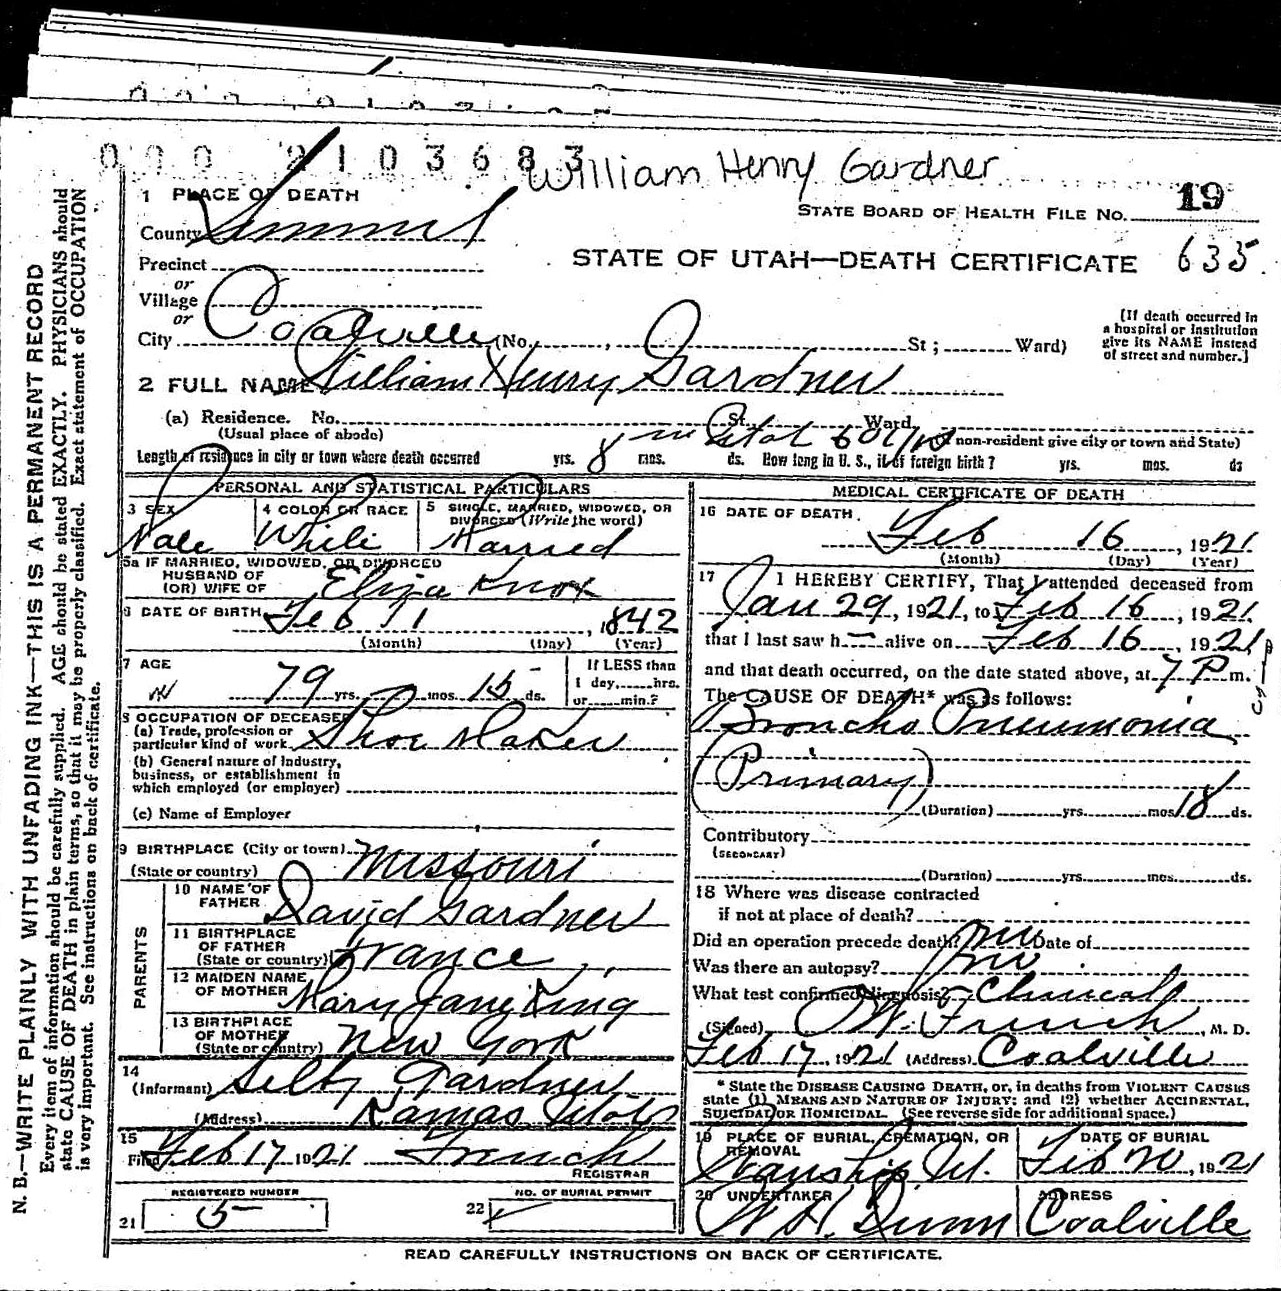 000 2103683
William Henry Gardner
1 PLACE OF DEATH
STATE BOARD OF HEALTH FILE NO. 19
County Summit
STATE OF UTAH—DEATH CERTIFICATE 635
Precinct
or
Village
or
City Coalville (No. , St ; Ward)
[If death occurred in
a hospital or institution
give its NAME instead
of street and number.]
2 FULL NAME William Henry Gardner
(a) Residence. No. St. Ward
(Usual place of abode) non-resident give city or town and State)
Length of residence in city or town where death occurred yrs. 8 mos. ds. How long in U. S., if of foreign birth? yrs. mos. ds
PERSONAL AND STATISTICAL PARTICULARS
3 SEX
Male
4 COLOR OR RACE
White
5 SINGLE, MARRIED, WIDOWED, OR
DIVORCED (Write the word)
Married
5a IF MARRIED, WIDOWED, OR DIVORCED
HUSBAND OF
(OR) WIFE OF Eliza Knox
6 DATE OF BIRTH Feb 1 , 1842
(Month) (Day) (Year)
7 AGE
79 yrs. mos. 15 ds.
If LESS than
1 day, hrs.
or min.?
8 OCCUPATION OF DECEASED
(a) Trade, profession or
particular kind of work Shoe Maker
(b) General nature of Industry,
business, or establishment in
which employed (or employer)
(c) Name of Employer
9 BIRTHPLACE (City or town)
(State or country) Missouri
PARENTS
10 NAME OF
FATHER David Gardner
11 BIRTHPLACE
OF FATHER
(State or country) France
12 MAIDEN NAME
OF MOTHER Mary Jane King
13 BIRTHPLACE
OF MOTHER
(State or country) New York
14
(Informant) Gardner
(Address) Kamas Utah
15
Filed Feb 17 1921 French
REGISTRAR
REGISTERED NUMBER
21 5
NO. OF BURIAL PERMIT
22
MEDICAL CERTIFICATE OF DEATH
16 DATE OF DEATH
Feb 16, 1921
(Month) (Day) (Year)
17 I HEREBY CERTIFY, That I attended deceased from
Jan 29, 1921, to Feb 16, 1921
that I last saw h— alive on Feb 16, 1921
and that death occurred, on the date stated above, at 7 P m.
The CAUSE OF DEATH* was as follows:
Broncho Pneumonia
(Primary)
(Duration) yrs. mos. 18 ds.
Contributory
(SECONDARY)
(Duration) yrs. mos. ds.
18 Where was disease contracted
if not at place of death?
Did an operation precede death? no Date of
Was there an autopsy? no
What test confirmed diagnosis? Clinical
(Signed) W. French, M. D.
Feb 17, 1921 (Address) Coalville
* State the DISEASE CAUSING DEATH, or, in deaths from VIOLENT CAUSES
state (1) MEANS AND NATURE OF INJURY; and (2) whether ACCIDENTAL,
SUICIDAL OR HOMICIDAL. (See reverse side for additional space.)
19 PLACE OF BURIAL, CREMATION, OR
REMOVAL
Ut.
DATE OF BURIAL
Feb 20, 1921
20 UNDERTAKER
W H. Dunn
ADDRESS
Coalville
READ CAREFULLY INSTRUCTIONS ON BACK OF CERTIFICATE.
N. B.—WRITE PLAINLY WITH UNFADING INK—THIS IS A PERMANENT RECORD
Every item of information should be carefully supplied. AGE should be stated EXACTLY. PHYSICIANS should
state CAUSE OF DEATH in plain terms, so that it may be properly classified. Exact statement of OCCUPATION
is very important. See instructions on back of certificate.